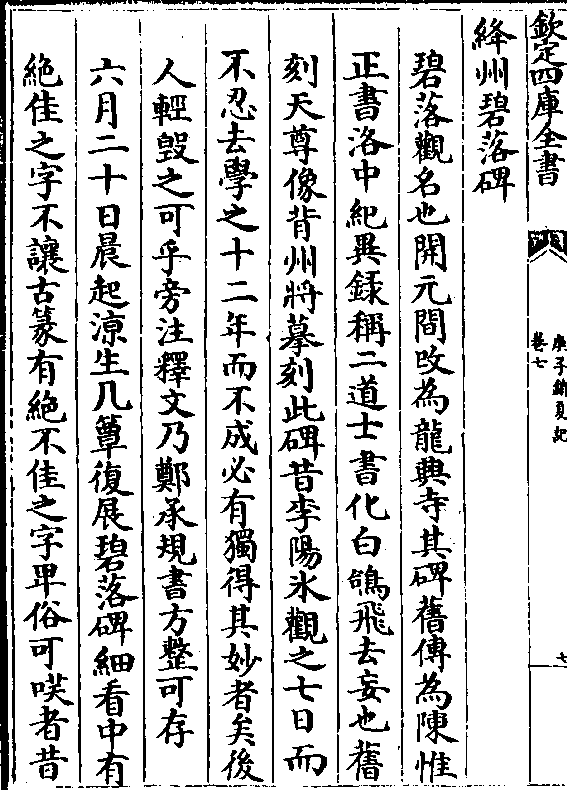 欽定四庫全書
庚子銷夏記
卷七
七
絳州碧落碑
碧落觀名也開元間改為龍興寺其碑舊傳為陳惟
正書洛中紀異録稱二道士書化白鴿飛去妄也舊
刻天尊像背州將摹刻此碑昔李陽氷觀之七日而
不忍去學之十二年而不成必有獨得其妙者矣後
人輕毀之可乎旁注釋文乃鄭承規書方整可存
六月二十日晨起涼生几簟復展碧落碑細看中有
絶佳之字不讓古篆有絶不佳之字卑俗可咲者昔